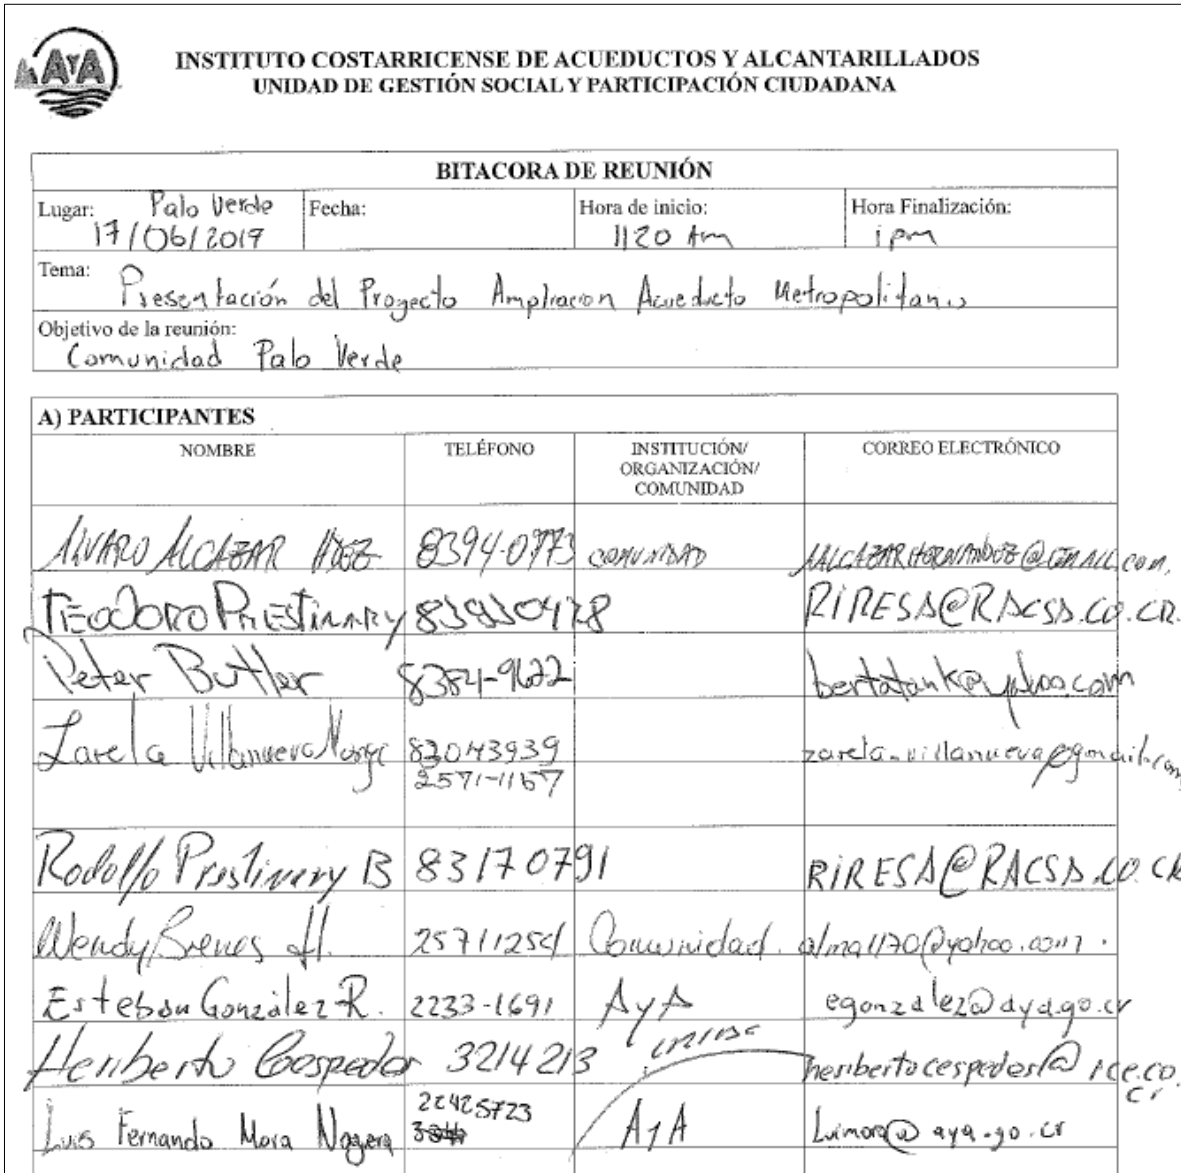 AYA
INSTITUTO COSTARRICENSE DE ACUEDUCTOS Y ALCANTARILLADOS
UNIDAD DE GESTIÓN SOCIAL Y PARTICIPACIÓN CIUDADANA
BITACORA DE REUNIÓN
Lugar: Palo Verde Fecha: Hora de inicio: Hora Finalización:
17/06/2019 1120 Am 1pm
Tema: Presentación del Proyecto Ampliacion Acueducto Metropolitano
Objetivo de la reunión:
Comunidad Palo Verde
A) PARTICIPANTES
NOMBRE TELÉFONO INSTITUCIÓN/ CORREO ELECTRÓNICO
ORGANIZACIÓN/
COMUNIDAD
ALVARO ALCAZAR HDEZ 8394-0773 COMUNIDAD AALCAZARHERNANDEZ@GMAIL.com.
TEODORO PRESTINARY RIRESA@RACSA.CO.CR.
Peter Butler 8384-9622 bertatank@yahoo.com
Zarela Villanueva Monge 83043939 zarela.villanueva@gmail.com
2571-1157
Rodolfo Prestinary B 83170791 RIRESA@RACSA.CO.CR
Wendy Brenes H. 25711254 Comunidad. alma1170@yahoo.com.
Esteban González R. 2233-1691 AyA egonzalez@aya.go.cr
Heriberto Cespedes 3214213 heribertocespedes@ice.co.cr
Luis Fernando Mora Noguera 22425723 AyA Luimora@aya.go.cr